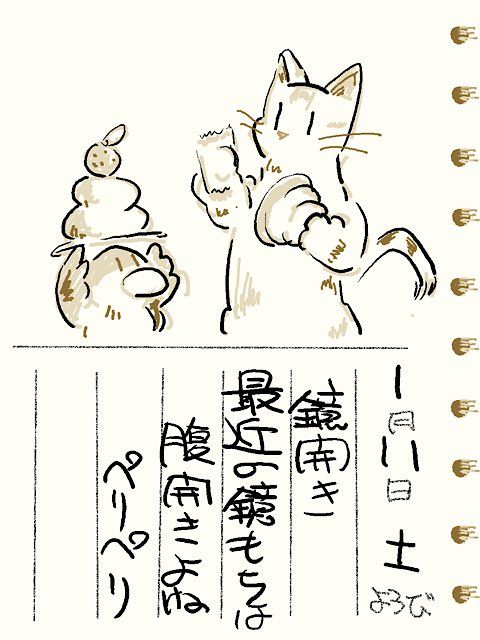 1月11日 土 よろび
鏡開き
最近の鏡もちは
腹開きよね
ペリペリ